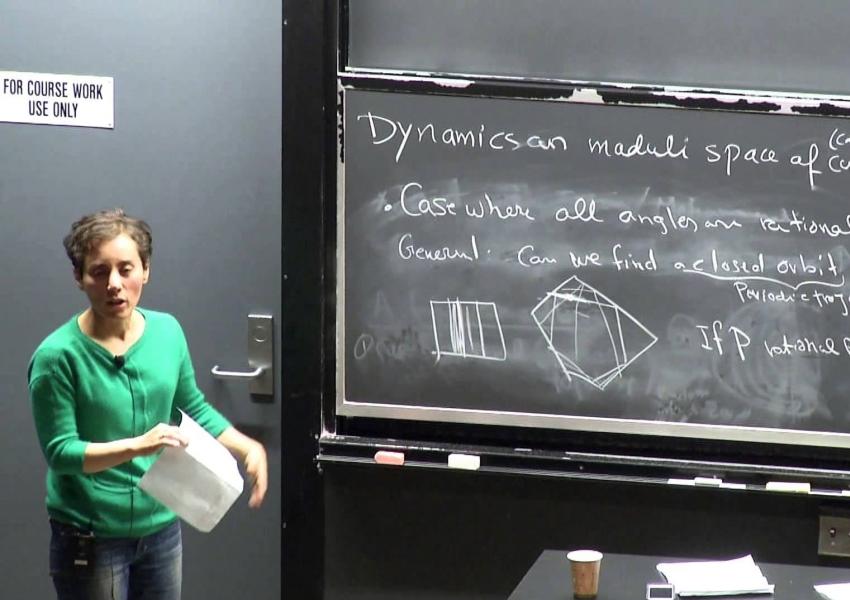 FOR COURSE WORK
USE ONLY
Dynamics on moduli space of
• Case where all angles are rational
General: Can we find a closed orbit,
Periodic
If P rational